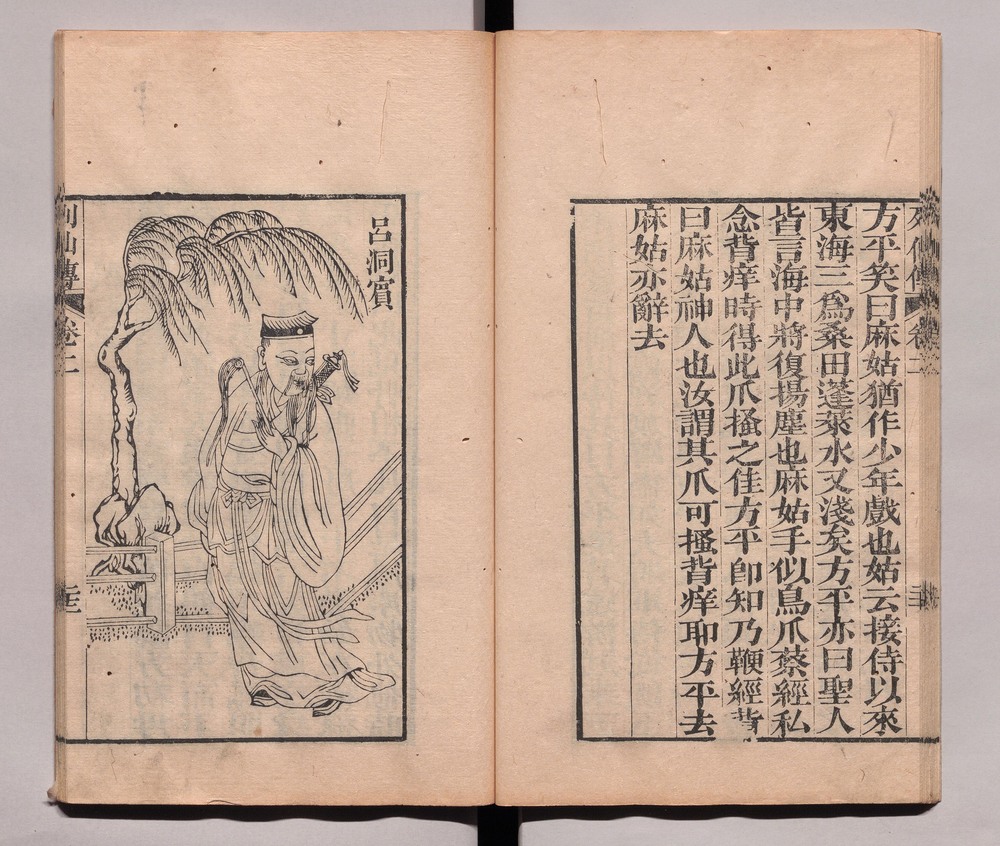 方平笑曰麻姑猶作少年戲也姑云接侍以來
東海三爲桑田蓬萊水又淺矣方平亦曰聖人
皆言海中將復揚塵也麻姑手似鳥爪蔡經私
念背痒時得此爪搔之佳方平卽知乃鞭經背
曰麻姑神人也汝謂其爪可搔背痒耶方平去
麻姑亦辭去
呂洞賓
列仙傳
卷二